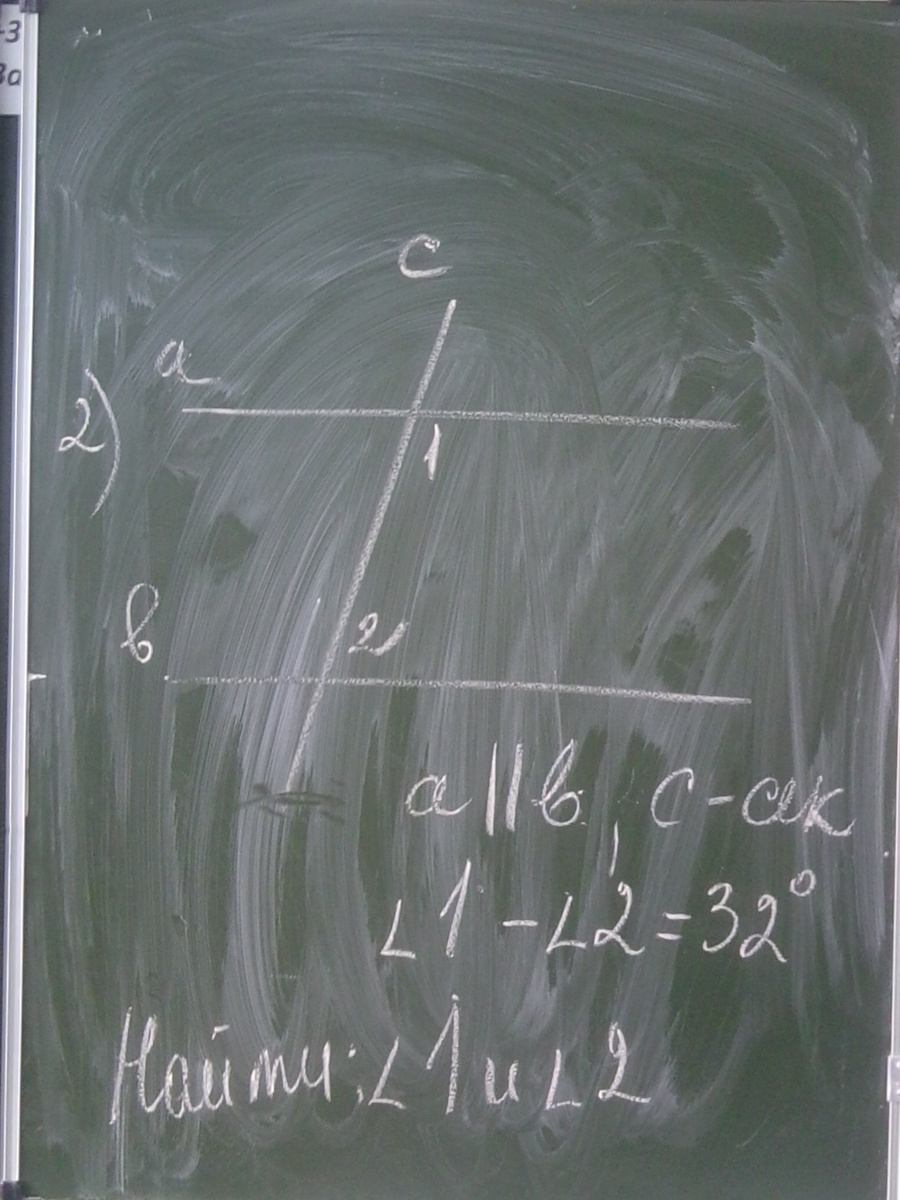 -3
за
c
a
2)
1
в
2
a || в, c - сек
∠1 - ∠2 = 32°
Найти: ∠1 и ∠2